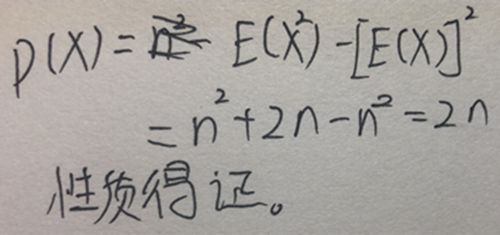 D(X) = E(X²) - [E(X)]²
= n² + 2n - n² = 2n
性质得证。